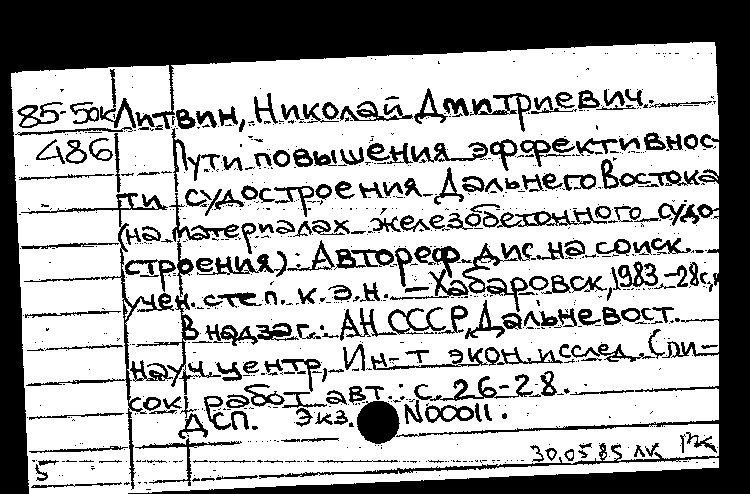 85-50к Литвин, Николай Дмитриевич.
486 Пути повышения эффективнос-
ти судостроения Дальнего Востока
(на материалах железобетонного судо-
строения): Автореф. дис. на соиск.
учен. степ. к.э.н. – Хабаровск, 1983.-28с.
В надзаг.: АН СССР, Дальневост.
науч. центр, Ин-т экон. исслед. Спи-
сок работ авт.: с. 26-28.
ДСП. Экз. N00011.
30.05.85 ЛК
5